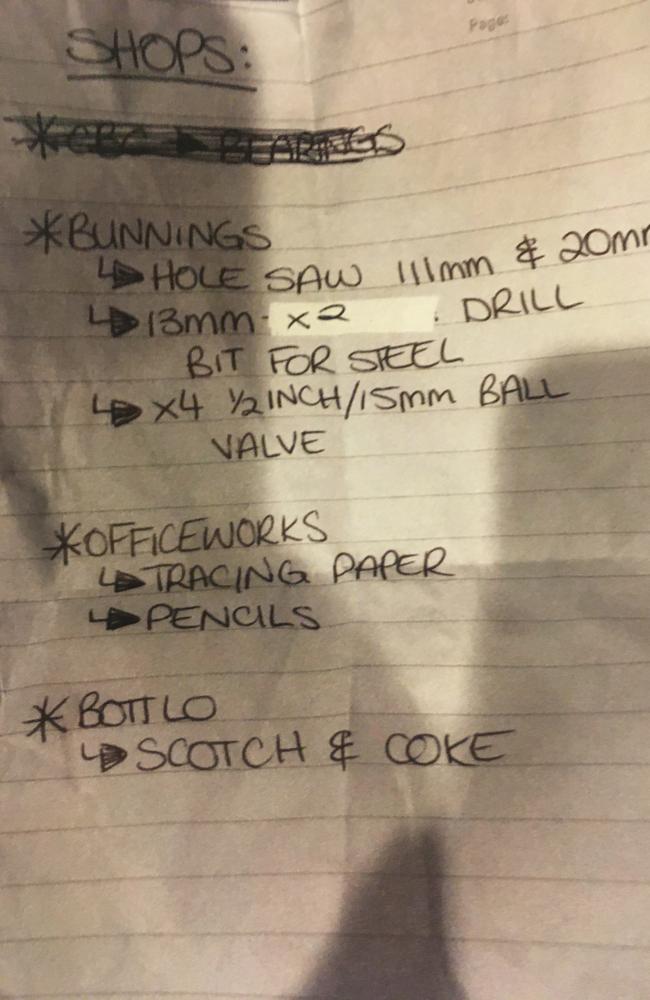 Page:
SHOPS:
*CBC → BEARINGS
*BUNNINGS
↳HOLE SAW 111mm & 20mm
↳13mm x2 . DRILL
BIT FOR STEEL
↳x4 1/2INCH/15mm BALL
VALVE
*OFFICEWORKS
↳TRACING PAPER
↳PENCILS
*BOTTLO
↳SCOTCH & COKE